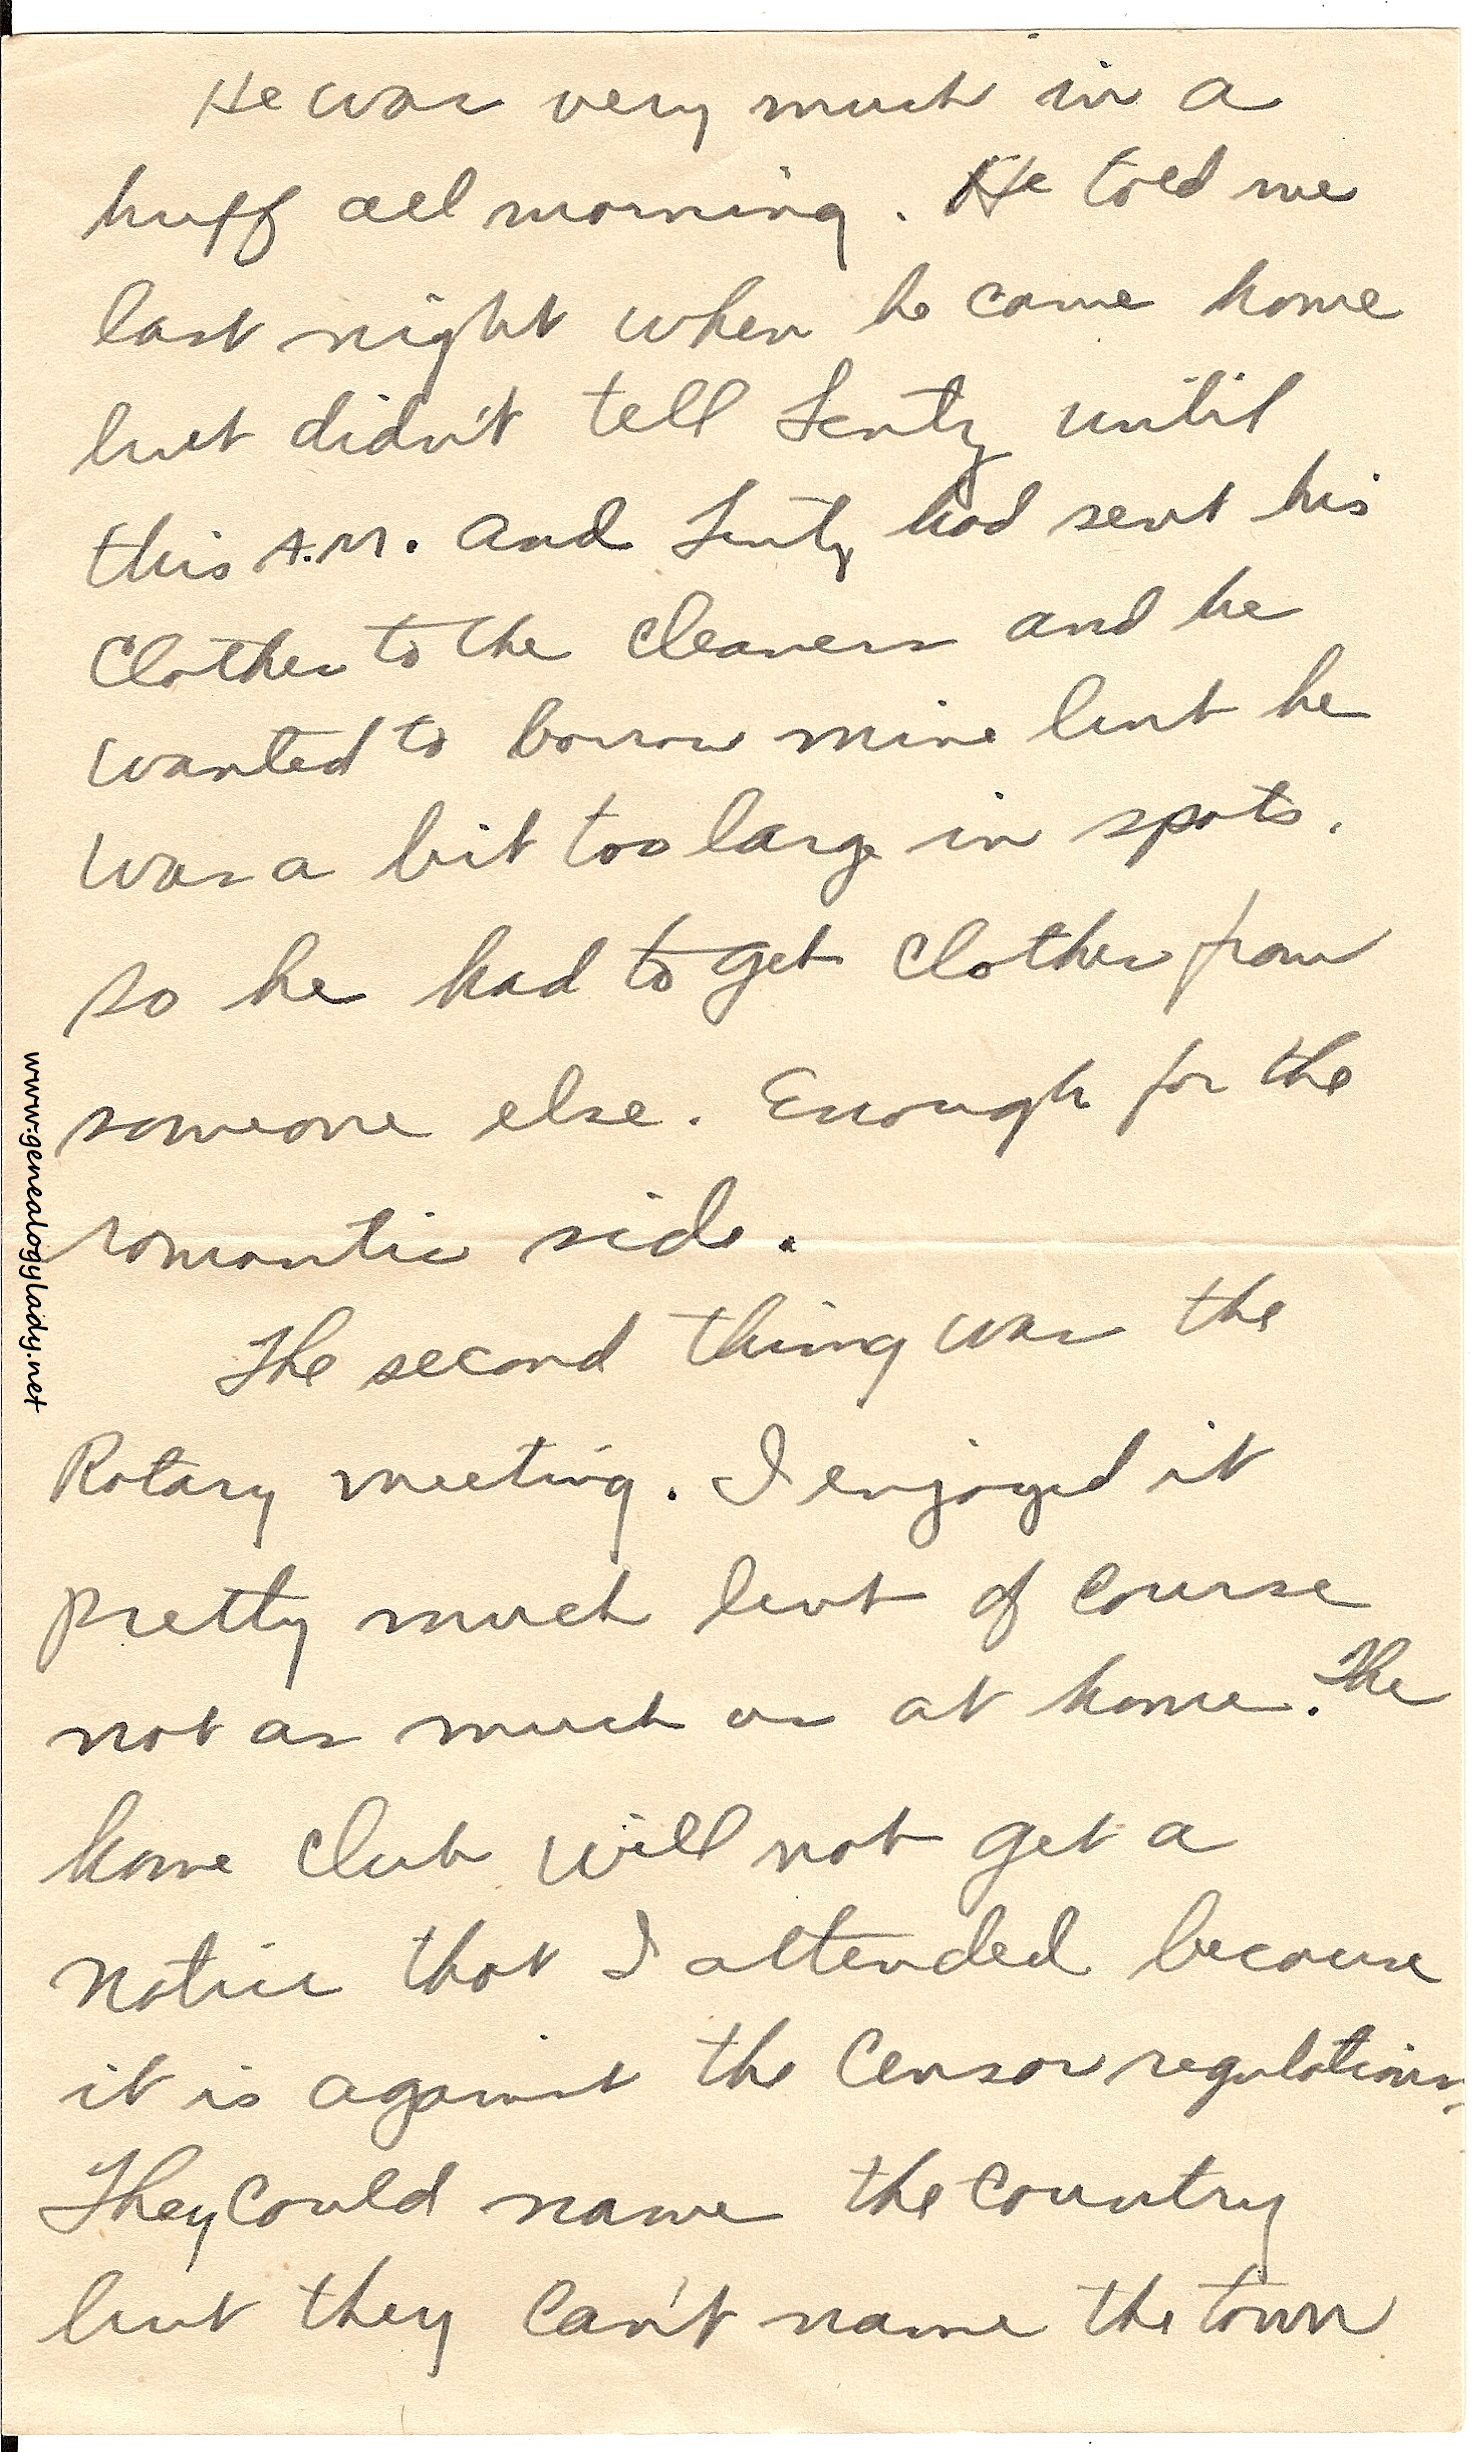 He was very much in a
huff all morning. He told me
last night when he came home
but didn't tell Lentz until
this A.M. and Lentz had sent his
clothes to the cleaners and he
wanted to borrow mine but he
was a bit too large in spots.
so he had to get clothes from
someone else. Enough for the
romantic side.
The second thing was the
Rotary meeting. I enjoyed it
pretty much but of course
not as much as at home. The
home club will not get a
notice that I attended because
it is against the censor regulations.
They could name the country
but they can't name the town
www.genealogylady.net